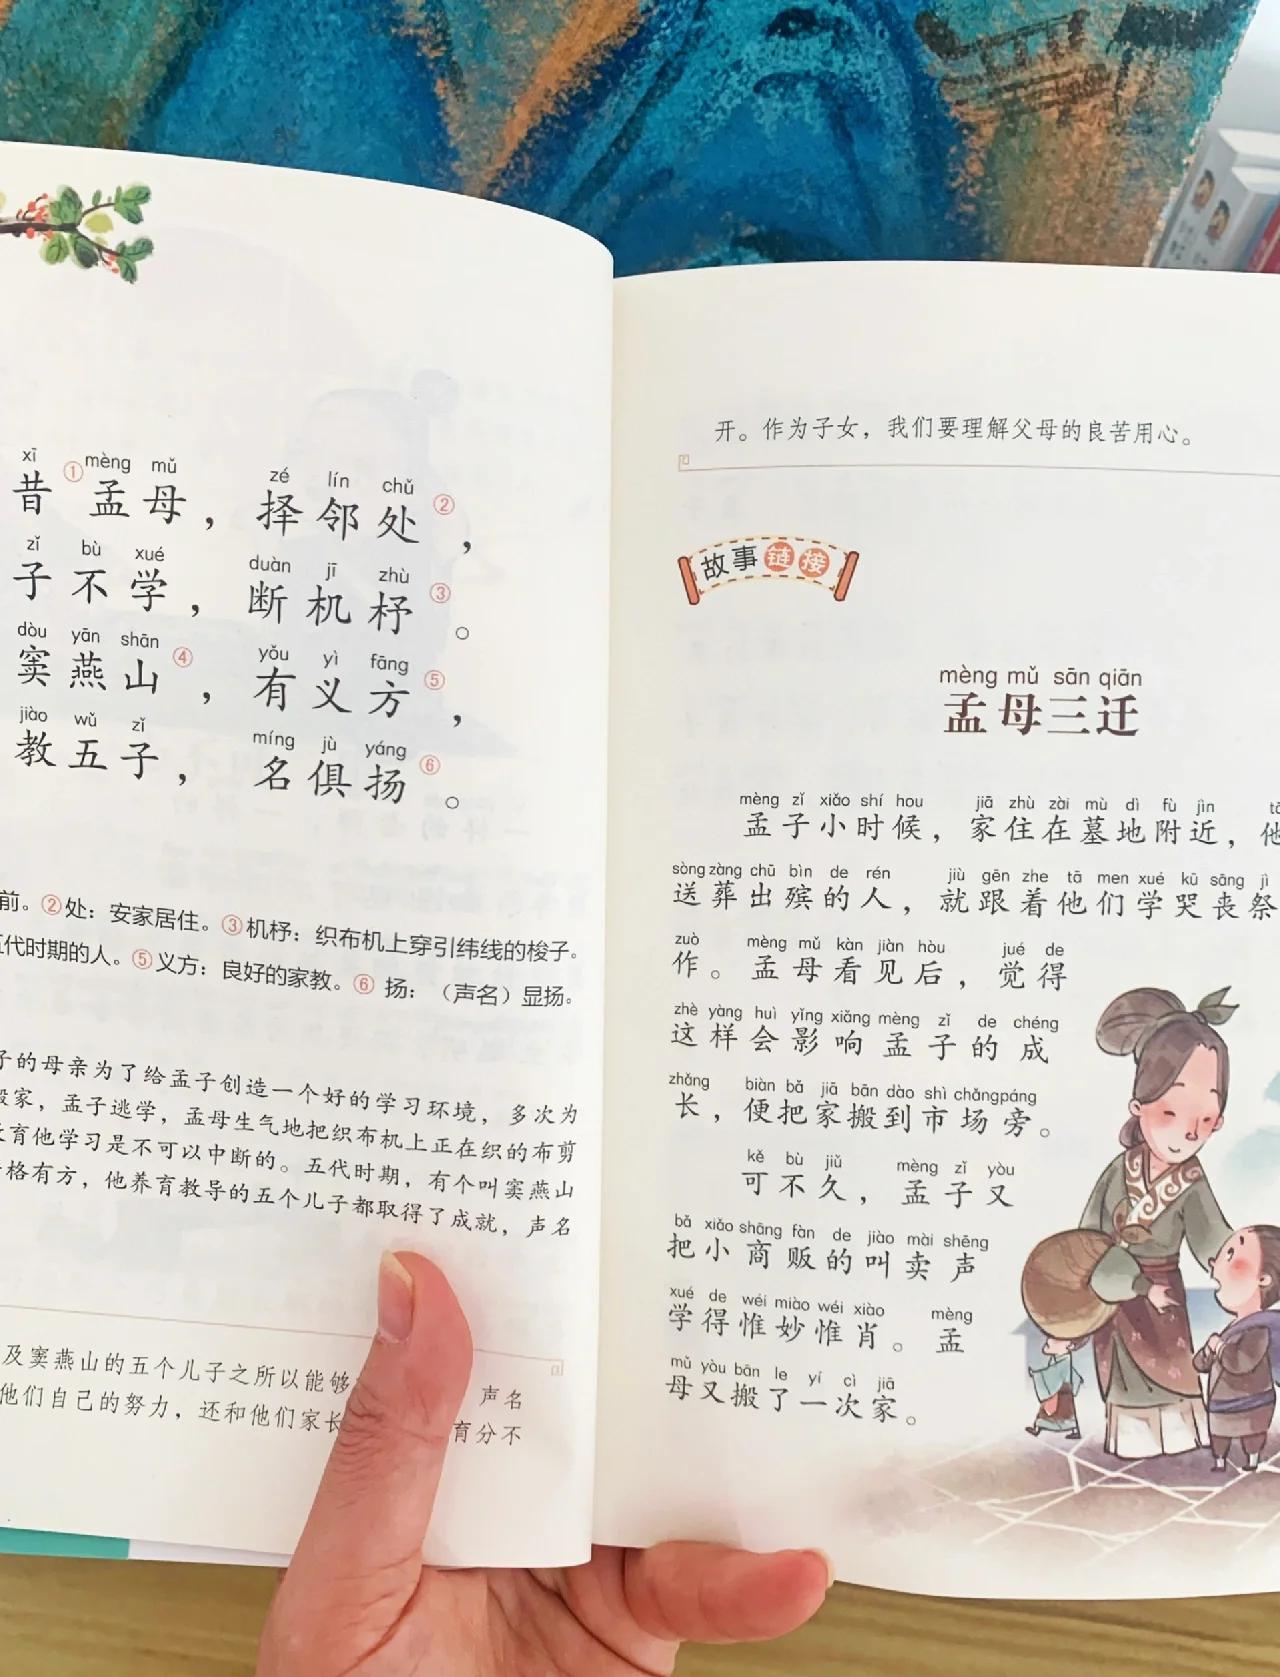 xī mèng mǔ zé lín chǔ
昔①孟母，择邻处②，
zǐ bù xué duàn jī zhù
子不学，断机杼③。
dòu yān shān yǒu yì fāng
窦燕山④，有义方⑤，
jiào wǔ zǐ míng jù yáng
教五子，名俱扬⑥。
前。②处：安家居住。③机杼：织布机上穿引纬线的梭子。
代时期的人。⑤义方：良好的家教。⑥扬：（声名）显扬。
子的母亲为了给孟子创造一个好的学习环境，多次为
搬家，孟子逃学，孟母生气地把织布机上正在织的布剪
育他学习是不可以中断的。五代时期，有个叫窦燕山
格有方，他养育教导的五个儿子都取得了成就，声名
及窦燕山的五个儿子之所以能够 声名
他们自己的努力，还和他们家长 育分不
开。作为子女，我们要理解父母的良苦用心。
故事链接
mèng mǔ sān qiān
孟母三迁
mèng zǐ xiǎo shí hou jiā zhù zài mù dì fù jìn
孟子小时候，家住在墓地附近，他
sòng zàng chū bìn de rén jiù gēn zhe tā men xué kū sāng jì
送葬出殡的人，就跟着他们学哭丧祭
zuò mèng mǔ kàn jiàn hòu jué de
作。孟母看见后，觉得
zhè yàng huì yǐng xiǎng mèng zǐ de chéng
这样会影响孟子的成
zhǎng biàn bǎ jiā bān dào shì chǎng páng
长，便把家搬到市场旁。
kě bù jiǔ mèng zǐ yòu
可不久，孟子又
bǎ xiǎo shāng fàn de jiào mài shēng
把小商贩的叫卖声
xué de wéi miào wéi xiào mèng
学得惟妙惟肖。孟
mǔ yòu bān le yí cì jiā
母又搬了一次家。